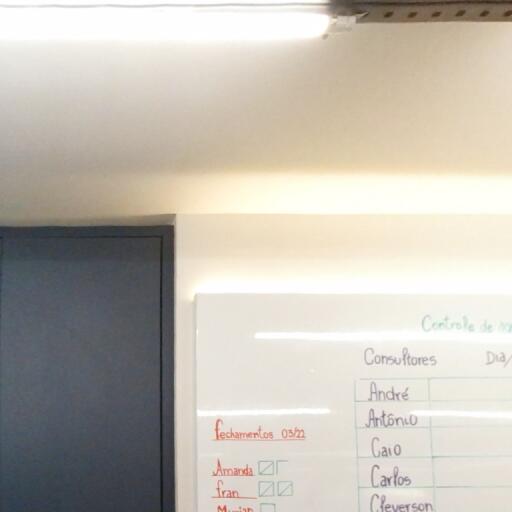 Controle de
Consultores Dia/
André
Antônio
Caio
Carlos
Cleverson
fechamentos 03/22
Amanda
fran